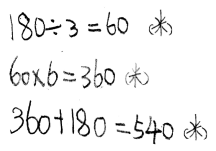 180÷3=60 (米)
60×6=360 (米)
360+180=540 (米)